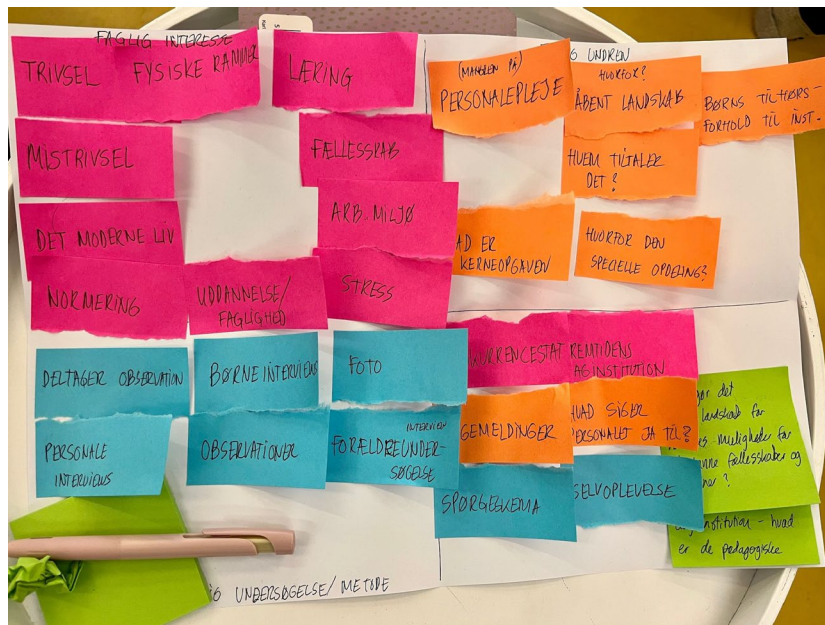 FAGLIG INTERESSE
TRIVSEL
FYSISKE RAMMER
LÆRING
MISTRIVSEL
FÆLLESSKAB
ARB. MILJØ
DET MODERNE LIV
NORMERING
UDDANNELSE/
FAGLIGHED
STRESS
UNDREN
(MANGLEN PÅ)
PERSONALEPLEJE
HVORFOR?
ÅBENT LANDSKAB
BØRNS TILHØRS-
FORHOLD TIL INST.
HVEM TILTALER
DET?
AD ER
KERNEOPGAVEN
HVORFOR DEN
SPECIELLE OPDELING?
DELTAGER OBSERVATION
BØRNEINTERVIEWS
FOTO
PERSONALE
INTERVIEWS
OBSERVATIONER
INTERVIEW
FORÆLDREUNDER-
SØGELSE
URRENCESTAT
REMTIDENS
AGINSTITUTION
GEMELDINGER
HVAD SIGER
PERSONALET JA TIL?
SPØRGESKEMA
SELVOPLEVELSE
det
landskab for
muligheder for
fællesskaber og
institution - hvad
er de pædagogiske
UNDERSØGELSE/METODE